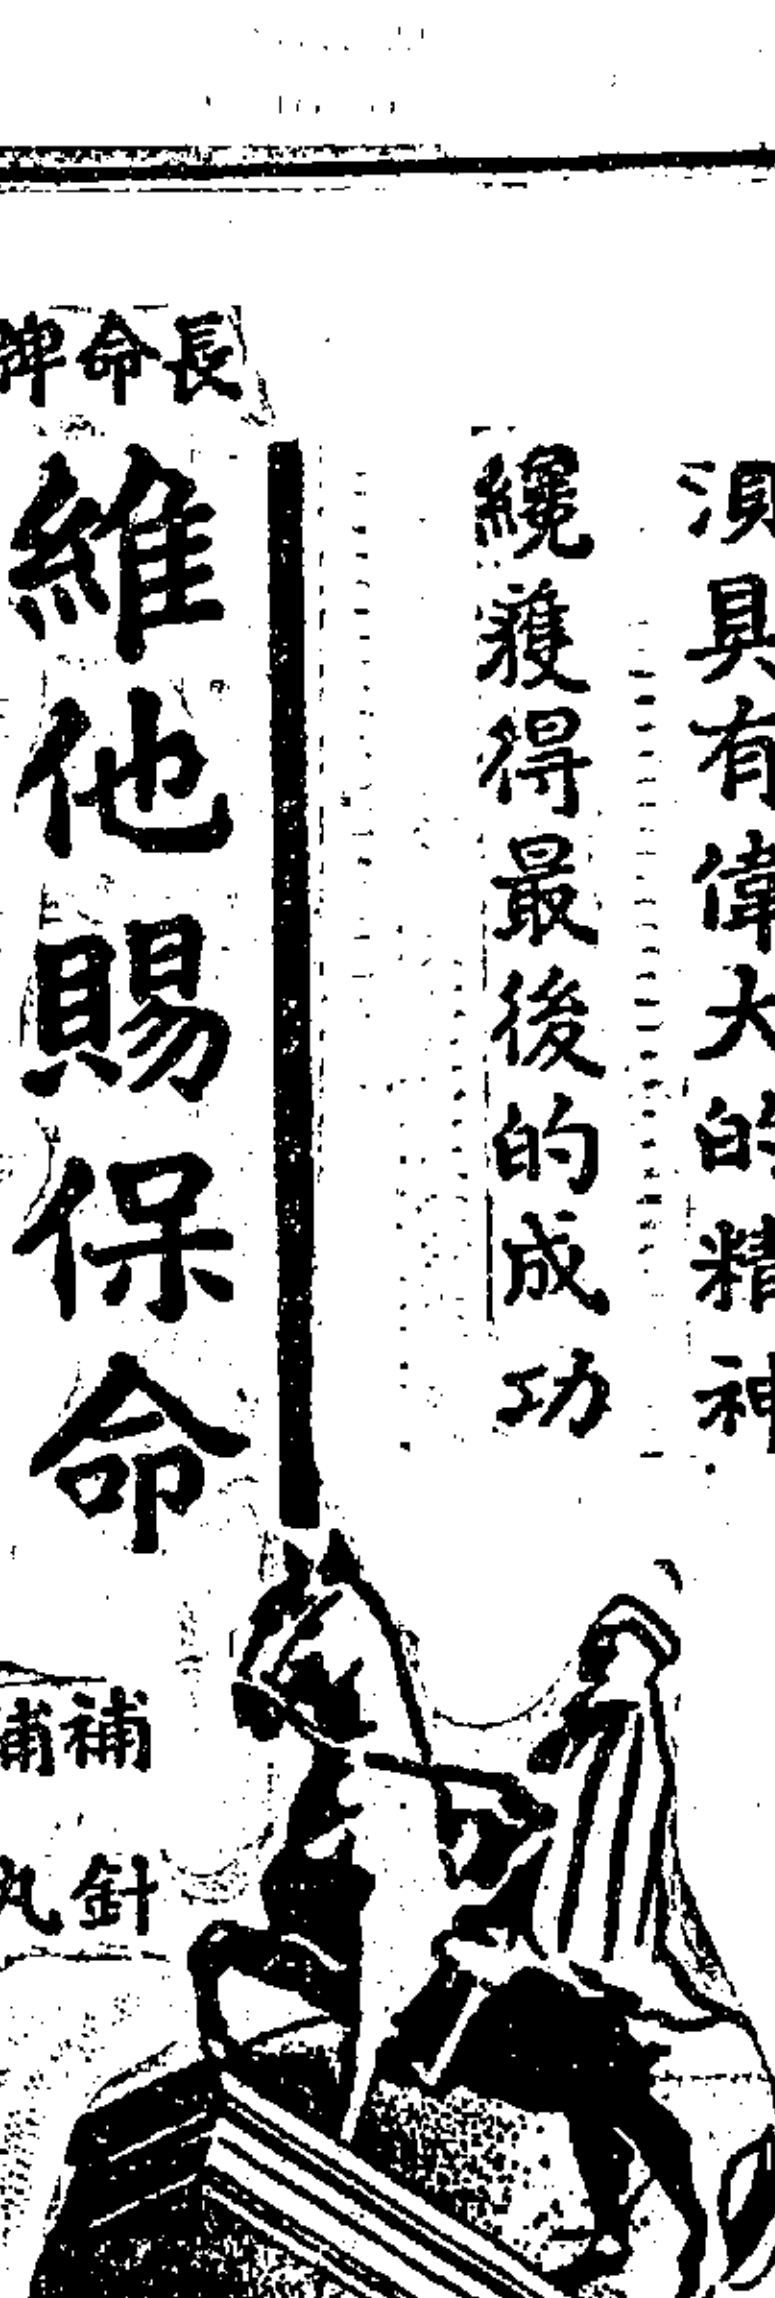 須具有偉大的精神
纔獲得最後的成功
長命牌
維他賜保命
補針
補丸